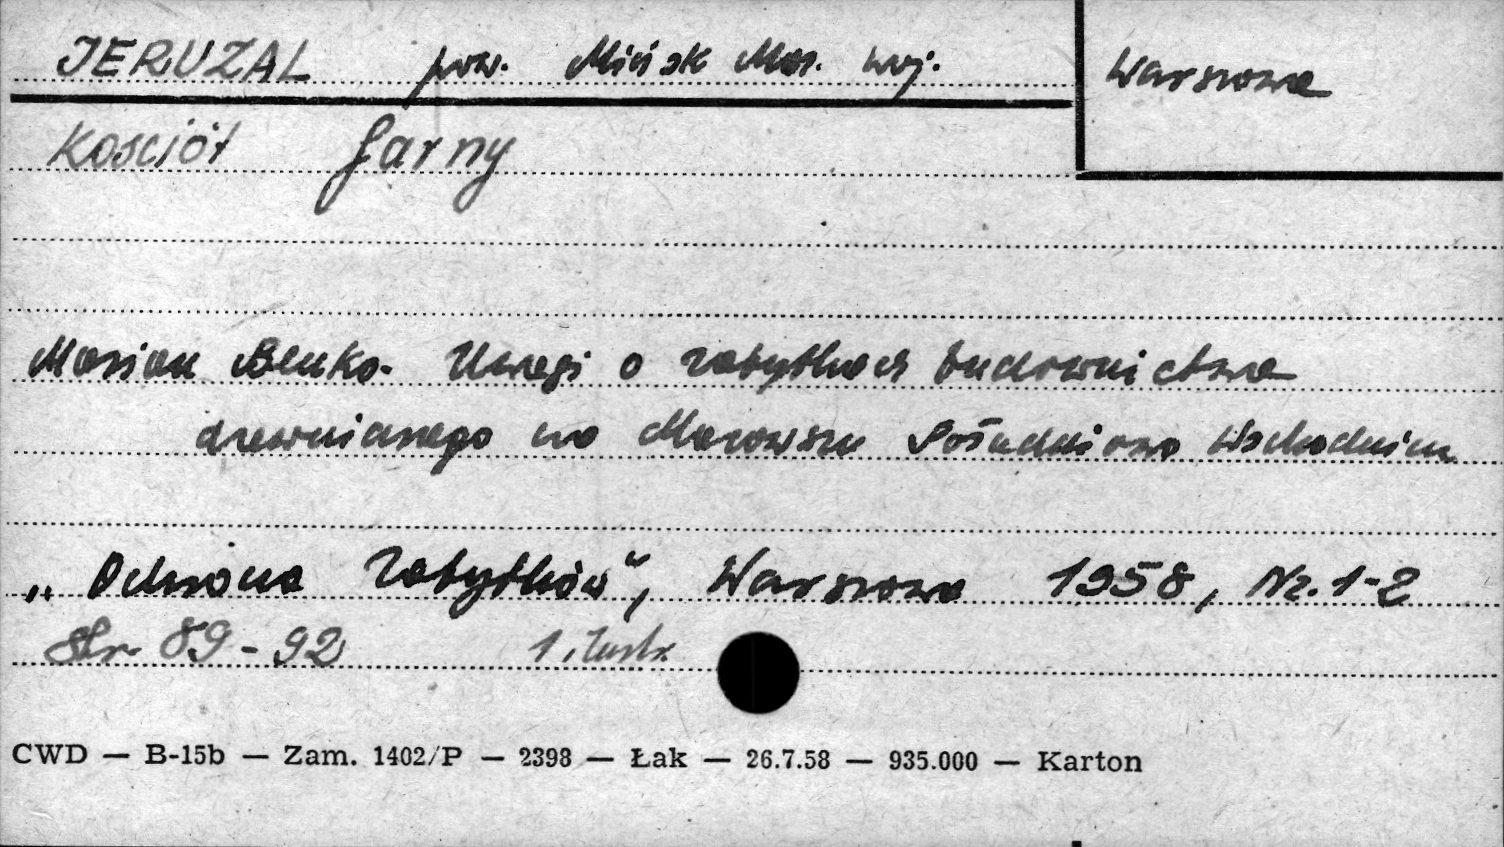 JERUZAL pow. Mińsk Maz. woj. Warszawa
Kościół farny
Marian Benko. Uwagi o zabytkach budownictwa
drewnianego na Mazowszu Południowo Wschodnim
„Ochrona Zabytków", Warszawa 1958, Nr. 1-2
Str. 89-92 1 ilustr.
CWD — B-15b — Zam. 1402/P — 2398 — Łak — 26.7.58 — 935.000 — Karton